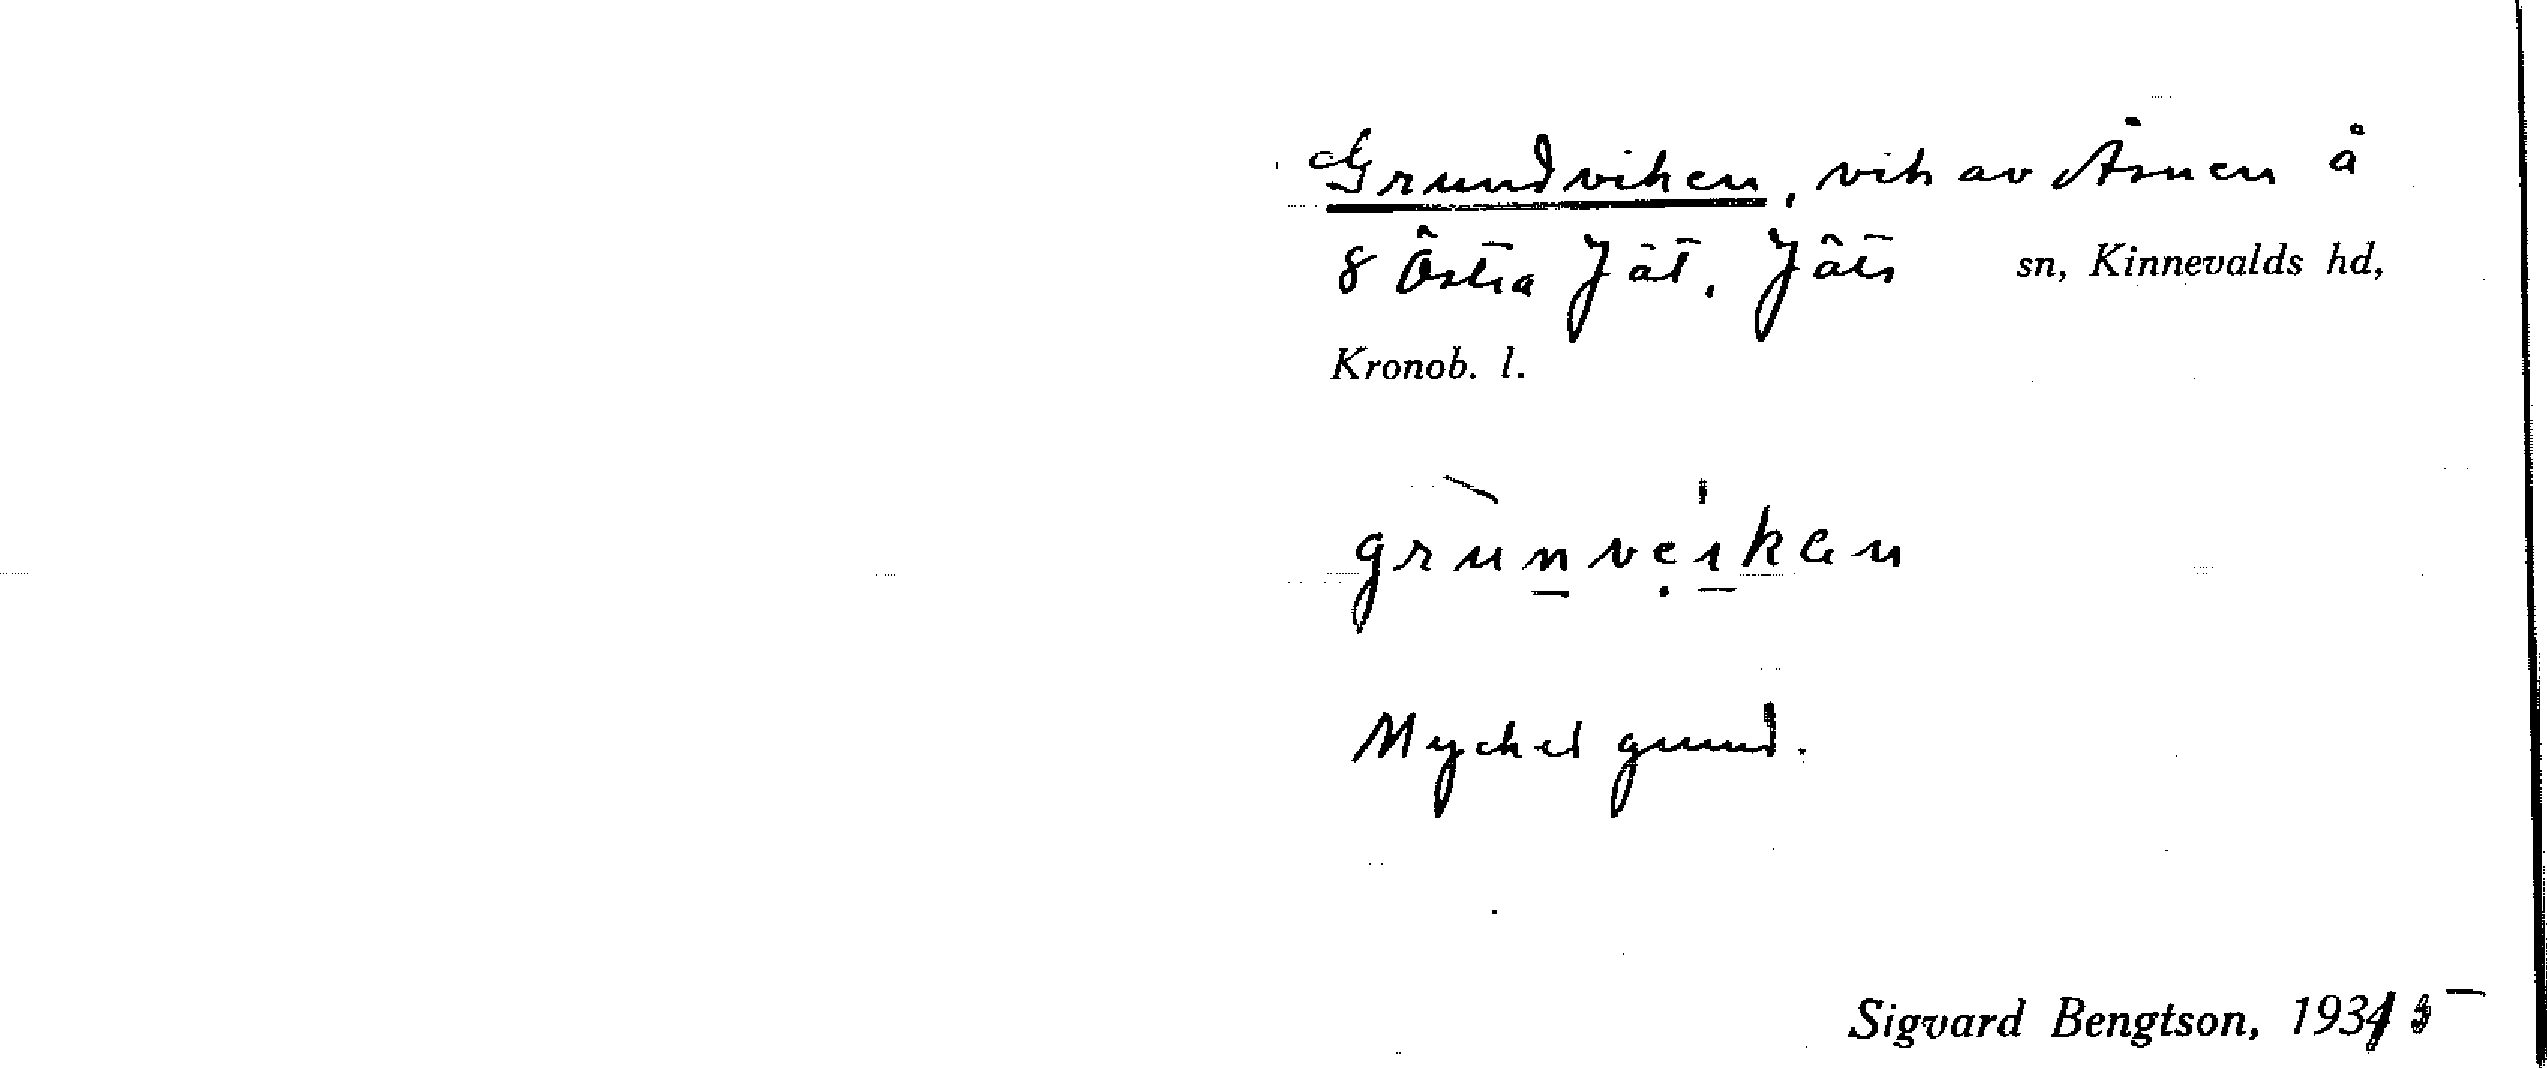 Grundviken, vik av Åsnen å
8 Östra Jät, Jäts sn, Kinnevalds hd,
Kronob. l.
grùnvẹi̱ken
Mycket grund.
Sigvard Bengtson, 1935